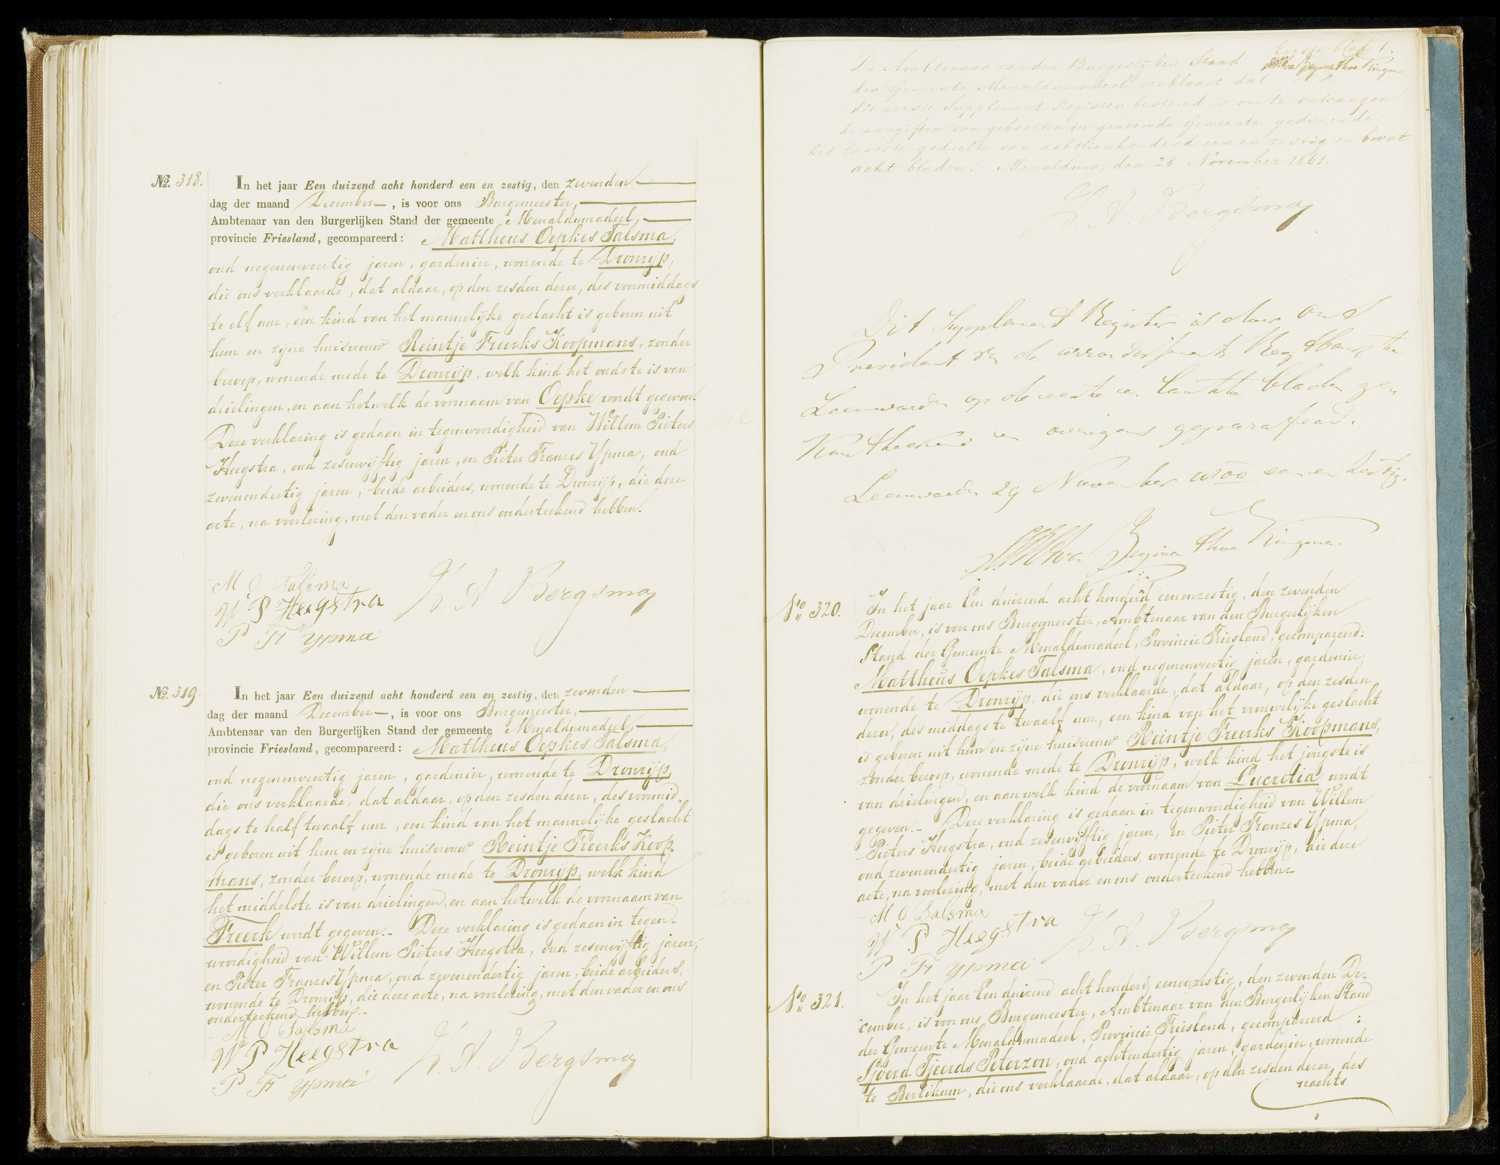 №. 318.
In het jaar Een duizend acht honderd een en zestig, den zevenden
dag der maand December, is voor ons Burgemeester,
Ambtenaar van den Burgerlijken Stand der gemeente Menaldumadeel,
provincie Friesland, gecompareerd: Mattheus Oepkes Talsma,
oud negenenveertig jaren, gardenier, wonende te Dronrijp,
die ons verklaarde, dat aldaar, op den zesden dezer, des voormiddags
te elf ure, een kind van het mannelijke geslacht is geboren uit
hem en zijne huisvrouw Reintje Freerks Koopmans, zonder
beroep, wonende mede te Dronrijp, welk kind het oudste is van
drielingen, en aan hetwelk de voornaam van Oepke wordt gegeven.
Deze verklaring is gedaan in tegenwoordigheid van Willem Pieters
Heegstra, oud zesenvijftig jaren, en Pieter Franzes Ypma, oud
zevenendertig jaren, beide arbeiders, wonende te Dronrijp, die deze
acte, na voorlezing, met den vader en ons onderteekend hebben.
M O Talsma
W P Heegstra
P Fr Ypma
A Bergsma
№. 319
In het jaar Een duizend acht honderd een en zestig, den zevenden
dag der maand December, is voor ons Burgemeester,
Ambtenaar van den Burgerlijken Stand der gemeente Menaldumadeel,
provincie Friesland, gecompareerd: Mattheus Oepkes Talsma,
oud negenenveertig jaren, gardenier, wonende te Dronrijp,
die ons verklaarde, dat aldaar, op den zesden dezer, des voormid-
dags te half twaalf ure, een kind van het mannelijke geslacht
is geboren uit hem en zijne huisvrouw Reintje Freerks Koop
mans, zonder beroep, wonende mede te Dronrijp, welk kind
het middelste is van drielingen, en aan hetwelk de voornaam van
Freerk wordt gegeven. Deze verklaring is gedaan in tegen-
woordigheid van Willem Pieters Heegstra, oud zesenvijftig jaren,
en Pieter Franzes Ypma, oud zevenendertig jaren, beide arbeiders,
wonende te Dronrijp, die deze acte, na voorlezing, met den vader en ons
onderteekend hebben.
M O Talsma
W P Heegstra
P Fr Ypma
A. Bergsma
De Ambtenaar van den Burgerlijken Stand
der Gemeente Menaldumadeel verklaart dat
dit eerste Supplement Register bestemd is om te ontvangen
de aangiften van geboorten in genoemde Gemeente gedurende
het jaar achttienhonderd een en zestig en bevat
acht bladen. Menaldum, den 26 November 1861.
A Bergsma
Dit Supplement Register is door ons
President van de arrondissements Regtbank te
Leeuwarden op de eerste en laatste bladen ge
kantteekend en overigens geparafeerd.
Leeuwarden 29 November 1800 een en zestig.
Buma
No 320.
In het jaar Een duizend acht honderd eenenzestig, den zevenden
December, is voor ons Burgemeester, Ambtenaar van den Burgerlijken
Stand der Gemeente Menaldumadeel, Provincie Friesland, gecompareerd:
Mattheus Oepkes Talsma, oud negenenveertig jaren, gardenier,
wonende te Dronrijp, die ons verklaarde, dat aldaar, op den zesden
dezer, des middags te twaalf ure, een kind van het vrouwelijke geslacht
is geboren uit hem en zijne huisvrouw Reintje Freerks Koopmans,
zonder beroep, wonende mede te Dronrijp, welk kind het jongste is
van drielingen, en aan welk kind de voornaam van Lucretia wordt
gegeven. Deze verklaring is gedaan in tegenwoordigheid van Willem
Pieters Heegstra, oud zesenvijftig jaren, en Pieter Franzes Ypma,
oud zevenendertig jaren, beide arbeiders, wonende te Dronrijp, die deze
acte, na voorlezing, met den vader en ons onderteekend hebben.
M O Talsma
W P Heegstra
P Fr Ypma
A. Bergsma
No 321.
In het jaar Een duizend acht honderd eenenzestig, den zevenden De-
cember, is voor ons, Burgemeester, Ambtenaar van den Burgerlijken Stand
der Gemeente Menaldumadeel, Provincie Friesland, gecompareerd:
Sjoerd Tjeerds Peterzon, oud achtendertig jaren, gardenier, wonende
te Berlikum, die ons verklaarde, dat aldaar, op den zesden dezer, des
nachts